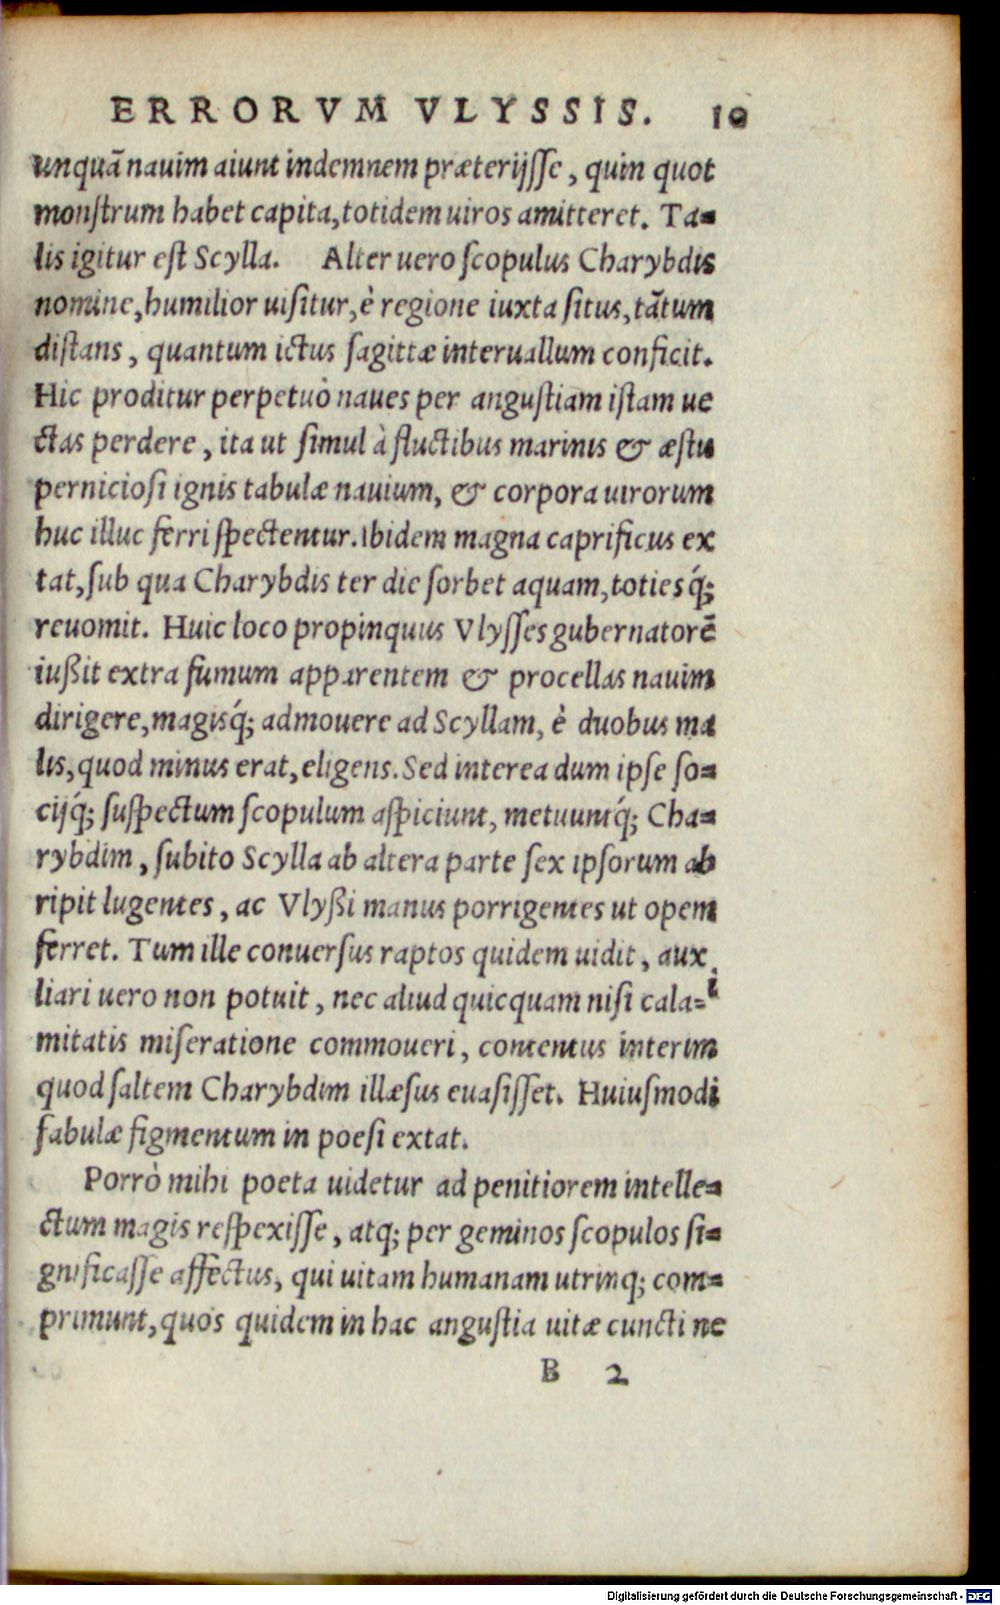 ERRORVM VLYSSIS. 10
unquā nauim aiunt indemnem præterijsse, quin quot
monſtrum habet capita, totidem uiros amitteret. Ta-
lis igitur eſt Scylla. Alter uero ſcopulus Charybdis
nomine, humilior uiſitur, è regione iuxta ſitus, tātum
diſtans, quantum ictus ſagittæ interuallum conficit.
Hic proditur perpetuò naues per anguſtiam iſtam ue
ctas perdere, ita ut ſimul à fluctibus marinis & æſtu
pernicioſi ignis tabulæ nauium, & corpora uirorum
huc illuc ferri ſpectentur. Ibidem magna caprificus ex
tat, ſub qua Charybdis ter die ſorbet aquam, totiesq́;
reuomit. Huic loco propinquus Vlyſſes gubernatorē
iußit extra fumum apparentem & procellas nauim
dirigere, magisq́; admouere ad Scyllam, è duobus ma
lis, quod minus erat, eligens. Sed interea dum ipſe ſo-
cijq́; ſuſpectum ſcopulum aſpiciunt, metuuntq́; Cha-
rybdim, ſubito Scylla ab altera parte ſex ipſorum ab
ripit lugentes, ac Vlyßi manus porrigentes ut opem
ferret. Tum ille conuerſus raptos quidem uidit, auxi
liari uero non potuit, nec aliud quicquam niſi cala-
mitatis miſeratione commoueri, contentus interim
quod ſaltem Charybdim illæſus euaſiſſet. Huiuſmodi
fabulæ figmentum in poeſi extat.
Porrò mihi poeta uidetur ad penitiorem intelle-
ctum magis reſpexiſſe, atq; per geminos ſcopulos ſi-
gnificaſſe affectus, qui uitam humanam utrinq; com-
primunt, quos quidem in hac anguſtia uitæ cuncti ne
B 2
Digitalisierung gefördert durch die Deutsche Forschungsgemeinschaft - DFG